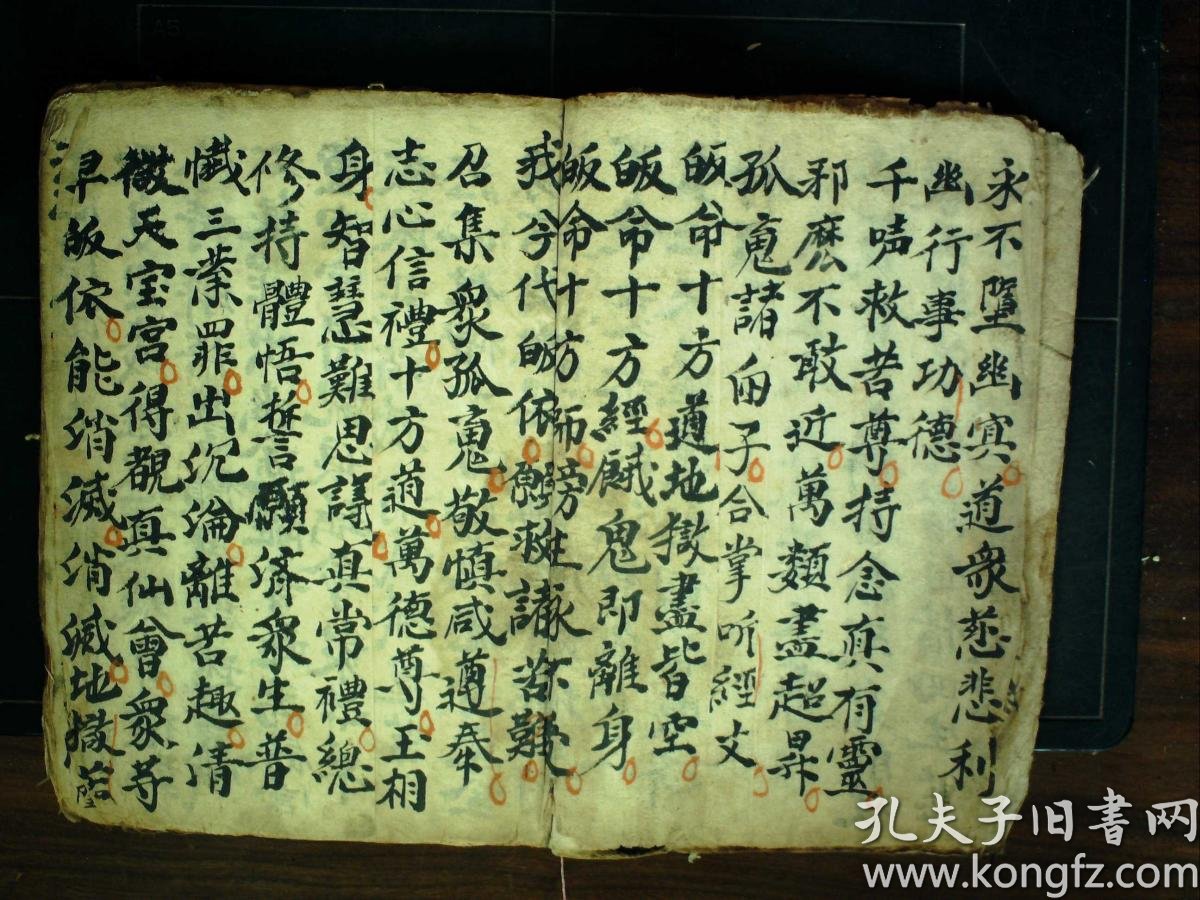 永不墮幽冥道衆慈悲利
幽行事功德
千声救苦尊持念真有靈
邪麽不敢近萬類盡超昇
孤寃諸由子合掌听經文
皈命十方道地獄盡皆空
皈命十方經餓鬼即離身
皈命十方師旁生永不受
我今代皈依觧救諸苦難
召集衆孤寃敬慎咸遵奉
志心信禮十方道萬德尊王相
身智慧難思詩真常禮總
修持體悟誓願済衆生普
懺三業罪出沉淪離苦趣清
微天宝宮得覩真仙會衆等
早皈依能消滅消滅地獄苦
A5
孔夫子旧書网
www.kongfz.com